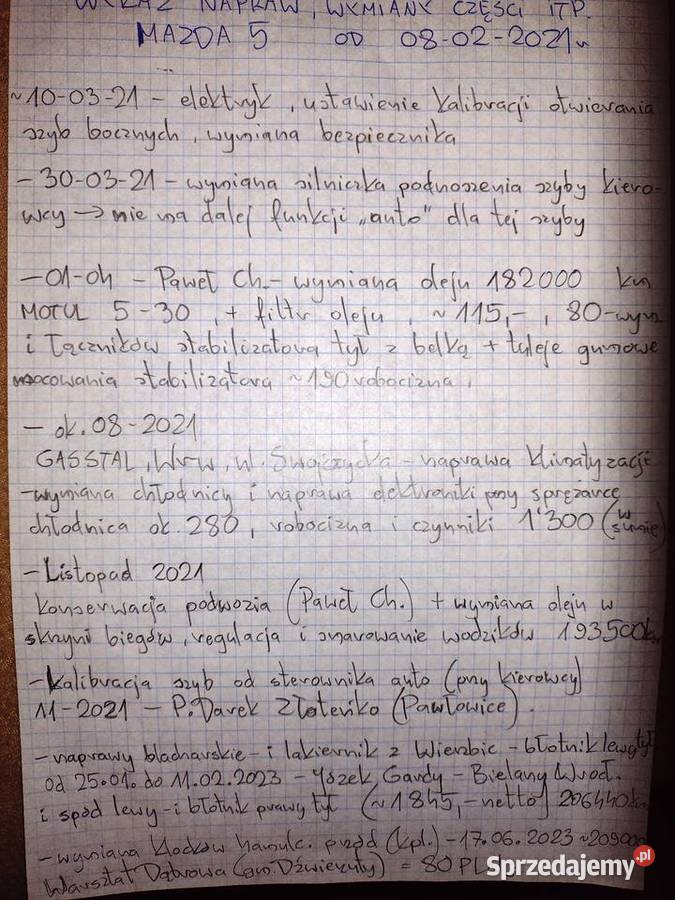 WYKAZ NAPRAW, WYMIANY CZĘŚCI ITP.
MAZDA 5 OD 08-02-2021r
~10-03-21 - elektryk, ustawienie kalibracji otwierania
szyb bocznych, wymiana bezpiecznika
- 30-03-21 - wymiana silniczka podnoszenia szyby kiero-
wcy → nie ma dalej funkcji "auto" dla tej szyby
- 01-04 - Paweł Ch. - wymiana oleju 182000 km
MOTUL 5-30, + filtr oleju, ~115,-, 80-wym
i łączników stabilizatora tył z belką + tuleje gumowe
mocowania stabilizatora ~190 robocizna,
- ok. 08-2021
GASSTAL, Wrw, ul. Swojczycka - naprawa klimatyzacji
- wymiana chłodnicy i naprawa elektroniki przy sprężarce
chłodnica ok. 280, robocizna i czynniki 1'300 (w sumie)
- Listopad 2021
Konserwacja podwozia (Paweł Ch.) + wymiana oleju w
skrzyni biegów, regulacja i smarowanie wodzików 193500km
- Kalibracja szyb od sterownika auto (przy kierowcy)
11-2021 - P. Darek Złoteńko (Pawłowice).
- naprawy blacharskie - i lakiernik z Wierzbic - błotnik lewy tył
od 25.01. do 11.02.2023 - Gandy - Bielany Wroł.
i spód lewy - i błotnik prawy tył (~1845,- netto) 206440km
- wymiana klocków hamulc. przód (kpl.) - 17.06.2023 ~209000
Warsztat Dąbrowa (gm. Dźwierzuty) = 80 PL
Sprzedajemy.pl